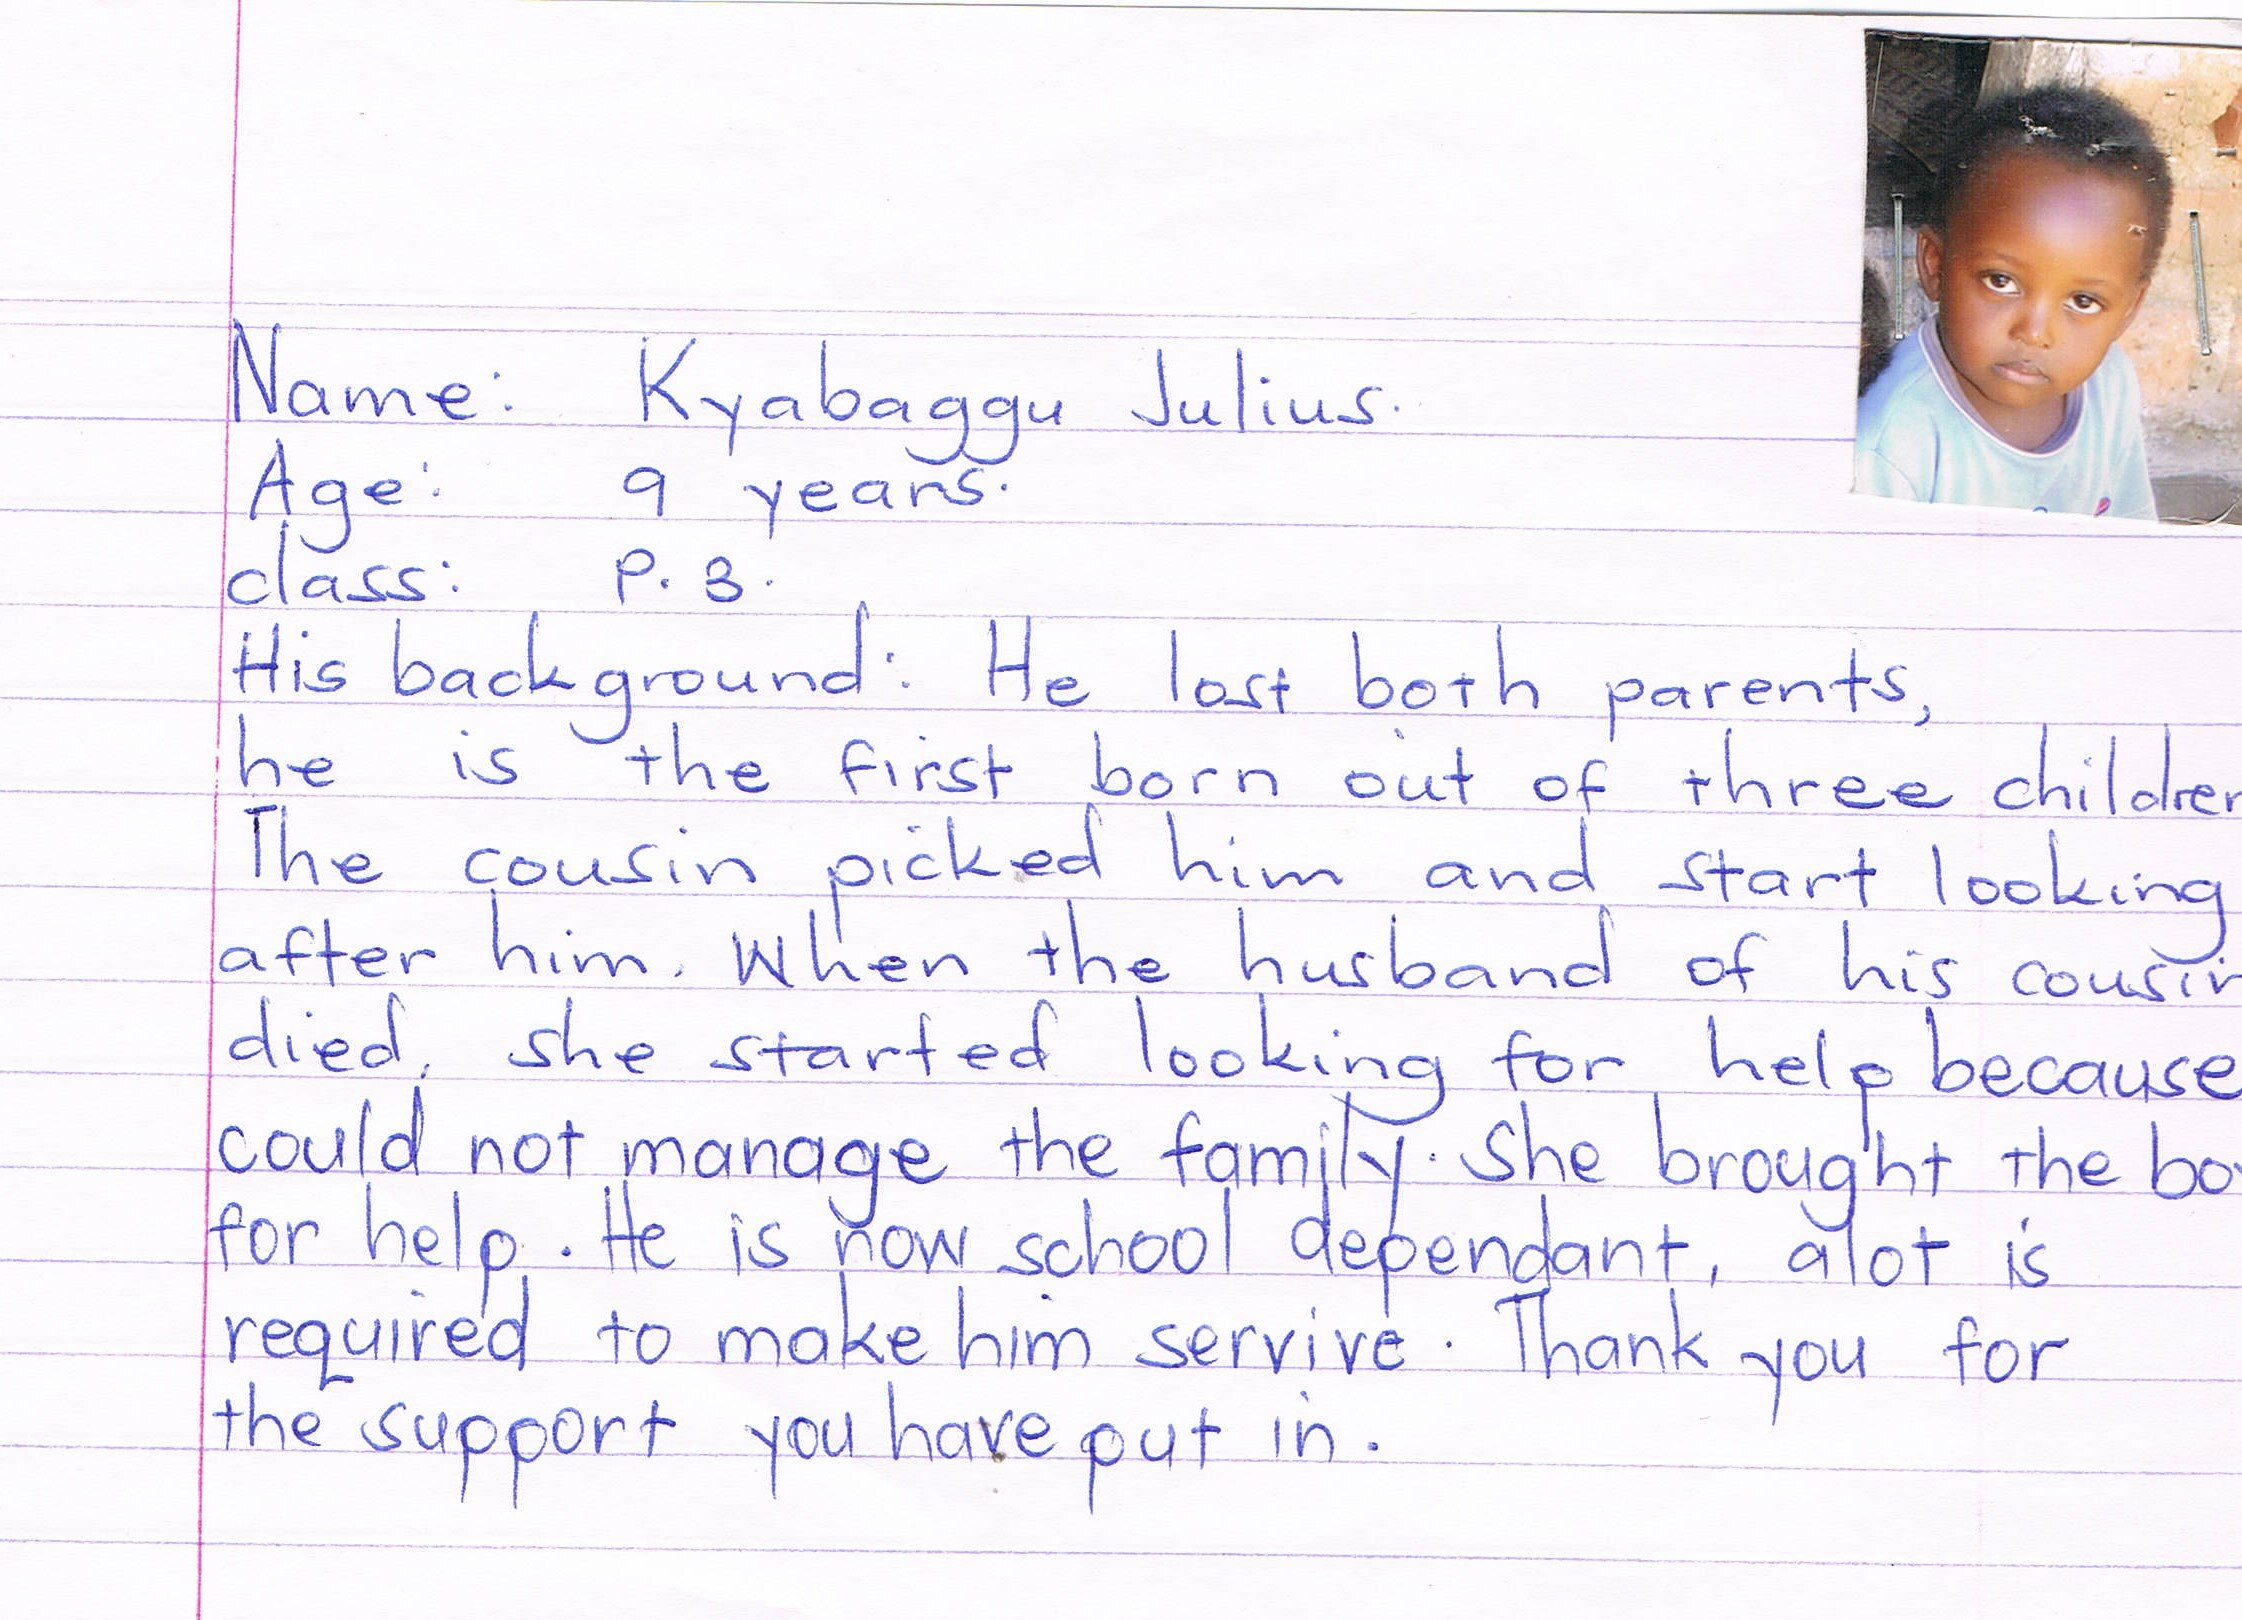 Name: Kyabaggu Julius.
Age: 9 years.
class: P. 3.
His background: He lost both parents,
he is the first born out of three children
The cousin picked him and start looking
after him. When the husband of his cousin
died, she started looking for help because
could not manage the family. She brought the boy
for help. He is now school dependant, alot is
required to make him servive. Thank you for
the support you have put in.